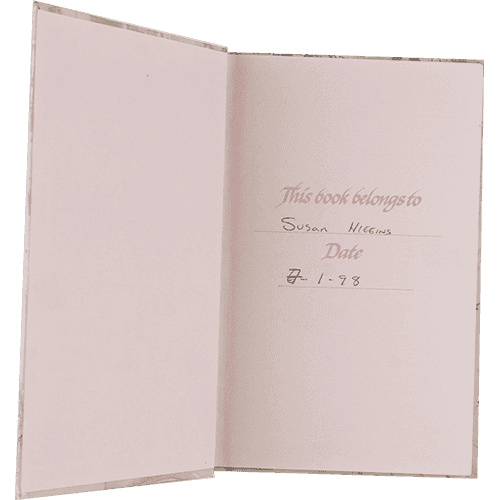 This book belongs to
Susan Higgins
Date
1-98